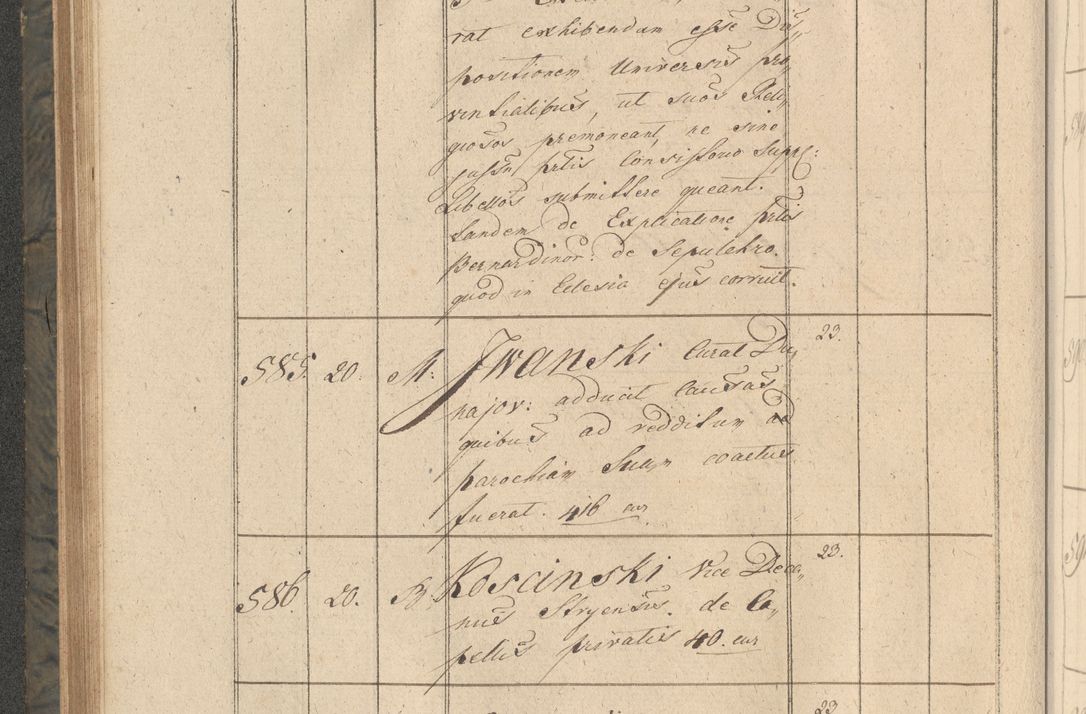 rat exhibendam esse Dis„
positionem Universis pro„
vintialibus, ut suos Reli„
giosos premoneant, ne sine
passu prtis Consissorio Suppl:
Libellos submittere queant.
tandem de Explicatiore prtis
Bernardinor: de Sepulchro.
quod in Eclesia ejus corruit.
585. 20. M: Iwanski Curat Du„ 23.
najov: adducit Causas
quibus ad redditum ad
parochiam Suam coactus
fuerat. 416 cur
586. 20. B: Koscinski Vice Deca„ 23.
nus Stryensis. de Ca„
pellis privatis 40. cur
23